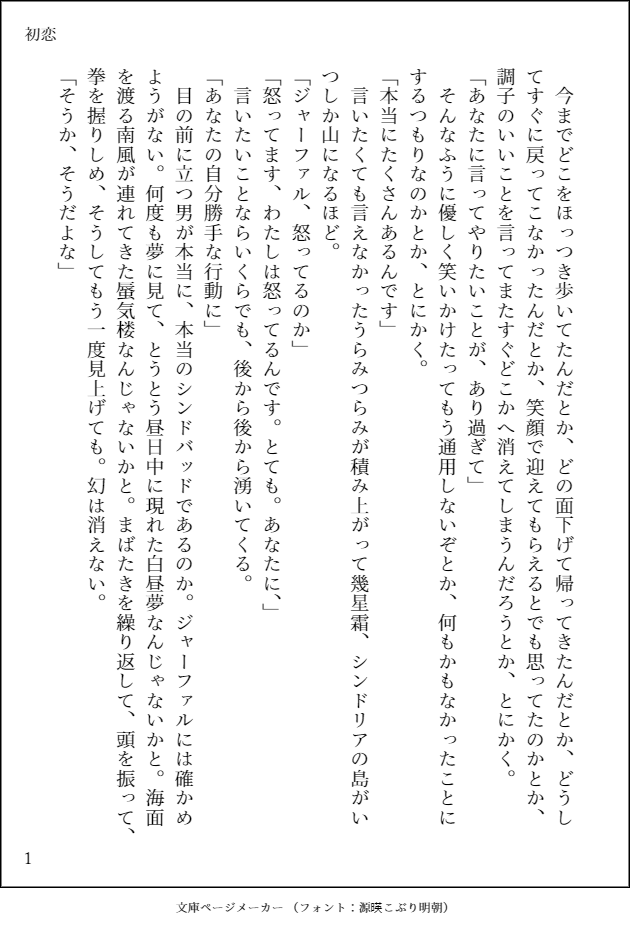 初恋
　今までどこをほっつき歩いてたんだとか、どの面下げて帰ってきたんだとか、どうし
てすぐに戻ってこなかったんだとか、笑顔で迎えてもらえるとでも思ってたのかとか、
調子のいいことを言ってまたすぐどこかへ消えてしまうんだろうとか、とにかく。
「あなたに言ってやりたいことが、あり過ぎて」
　そんなふうに優しく笑いかけたってもう通用しないぞとか、何もかもなかったことに
するつもりなのかとか、とにかく。
「本当にたくさんあるんです」
　言いたくても言えなかったうらみつらみが積み上がって幾星霜、シンドリアの島がい
つしか山になるほど。
「ジャーファル、怒ってるのか」
「怒ってます、わたしは怒ってるんです。とても。あなたに、」
　言いたいことならいくらでも、後から後から湧いてくる。
「あなたの自分勝手な行動に」
　目の前に立つ男が本当に、本当のシンドバッドであるのか。ジャーファルには確かめ
ようがない。何度も夢に見て、とうとう昼日中に現れた白昼夢なんじゃないかと。海面
を渡る南風が連れてきた蜃気楼なんじゃないかと。まばたきを繰り返して、頭を振って、
拳を握りしめ、そうしてもう一度見上げても。幻は消えない。
「そうか、そうだよな」
1
文庫ページメーカー （フォント：源暎こぶり明朝）